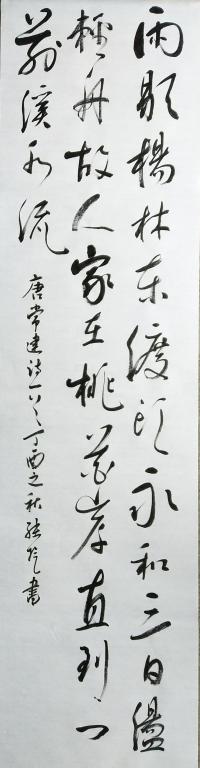 雨歇楊林东渡頭永和三日盪
輕舟故人家在桃花岸直到门
前溪水流
唐常建诗一首丁酉之秋 書